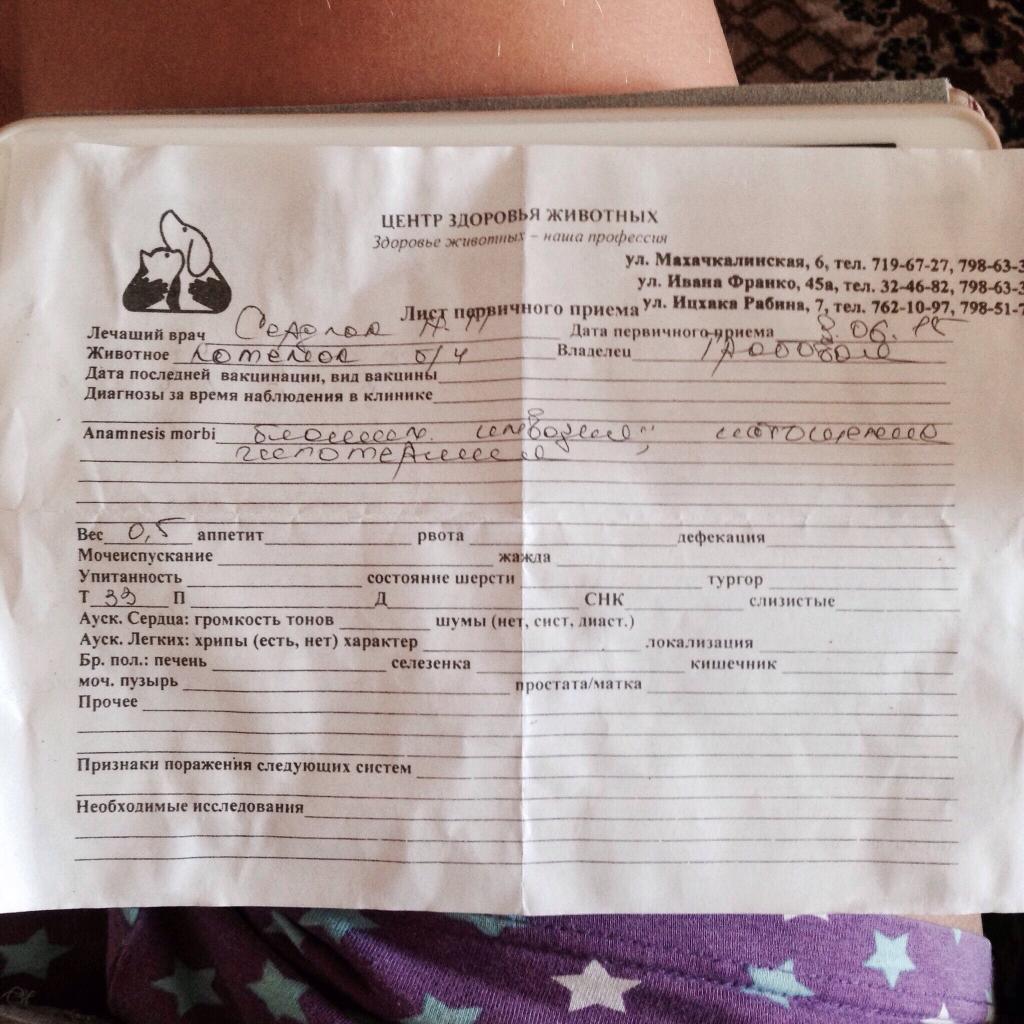 ЦЕНТР ЗДОРОВЬЯ ЖИВОТНЫХ
Здоровье животных – наша профессия
ул. Махачкалинская, 6, тел. 719-67-27, 798-63-3
ул. Ивана Франко, 45а, тел. 32-46-82, 798-63-3
ул. Ицхака Рабина, 7, тел. 762-10-97, 798-51-7
Лист первичного приема
Лечаший врач
Дата первичного приема 8.06.15
Животное котенок б/ч
Владелец
Дата последней вакцинации, вид вакцины
Диагнозы за время наблюдения в клинике
Anamnesis morbi блошин. инвазия; истощение
гипотермия
Вес 0,5 аппетит рвота дефекация
Мочеиспускание жажда
Упитанность состояние шерсти тургор
Т П Д СНК слизистые
Ауск. Сердца: громкость тонов шумы (нет, сист, диаст.)
Ауск. Легких: хрипы (есть, нет) характер локализация
Бр. пол.: печень селезенка кишечник
моч. пузырь простата/матка
Прочее
Признаки поражения следующих систем
Необходимые исследования